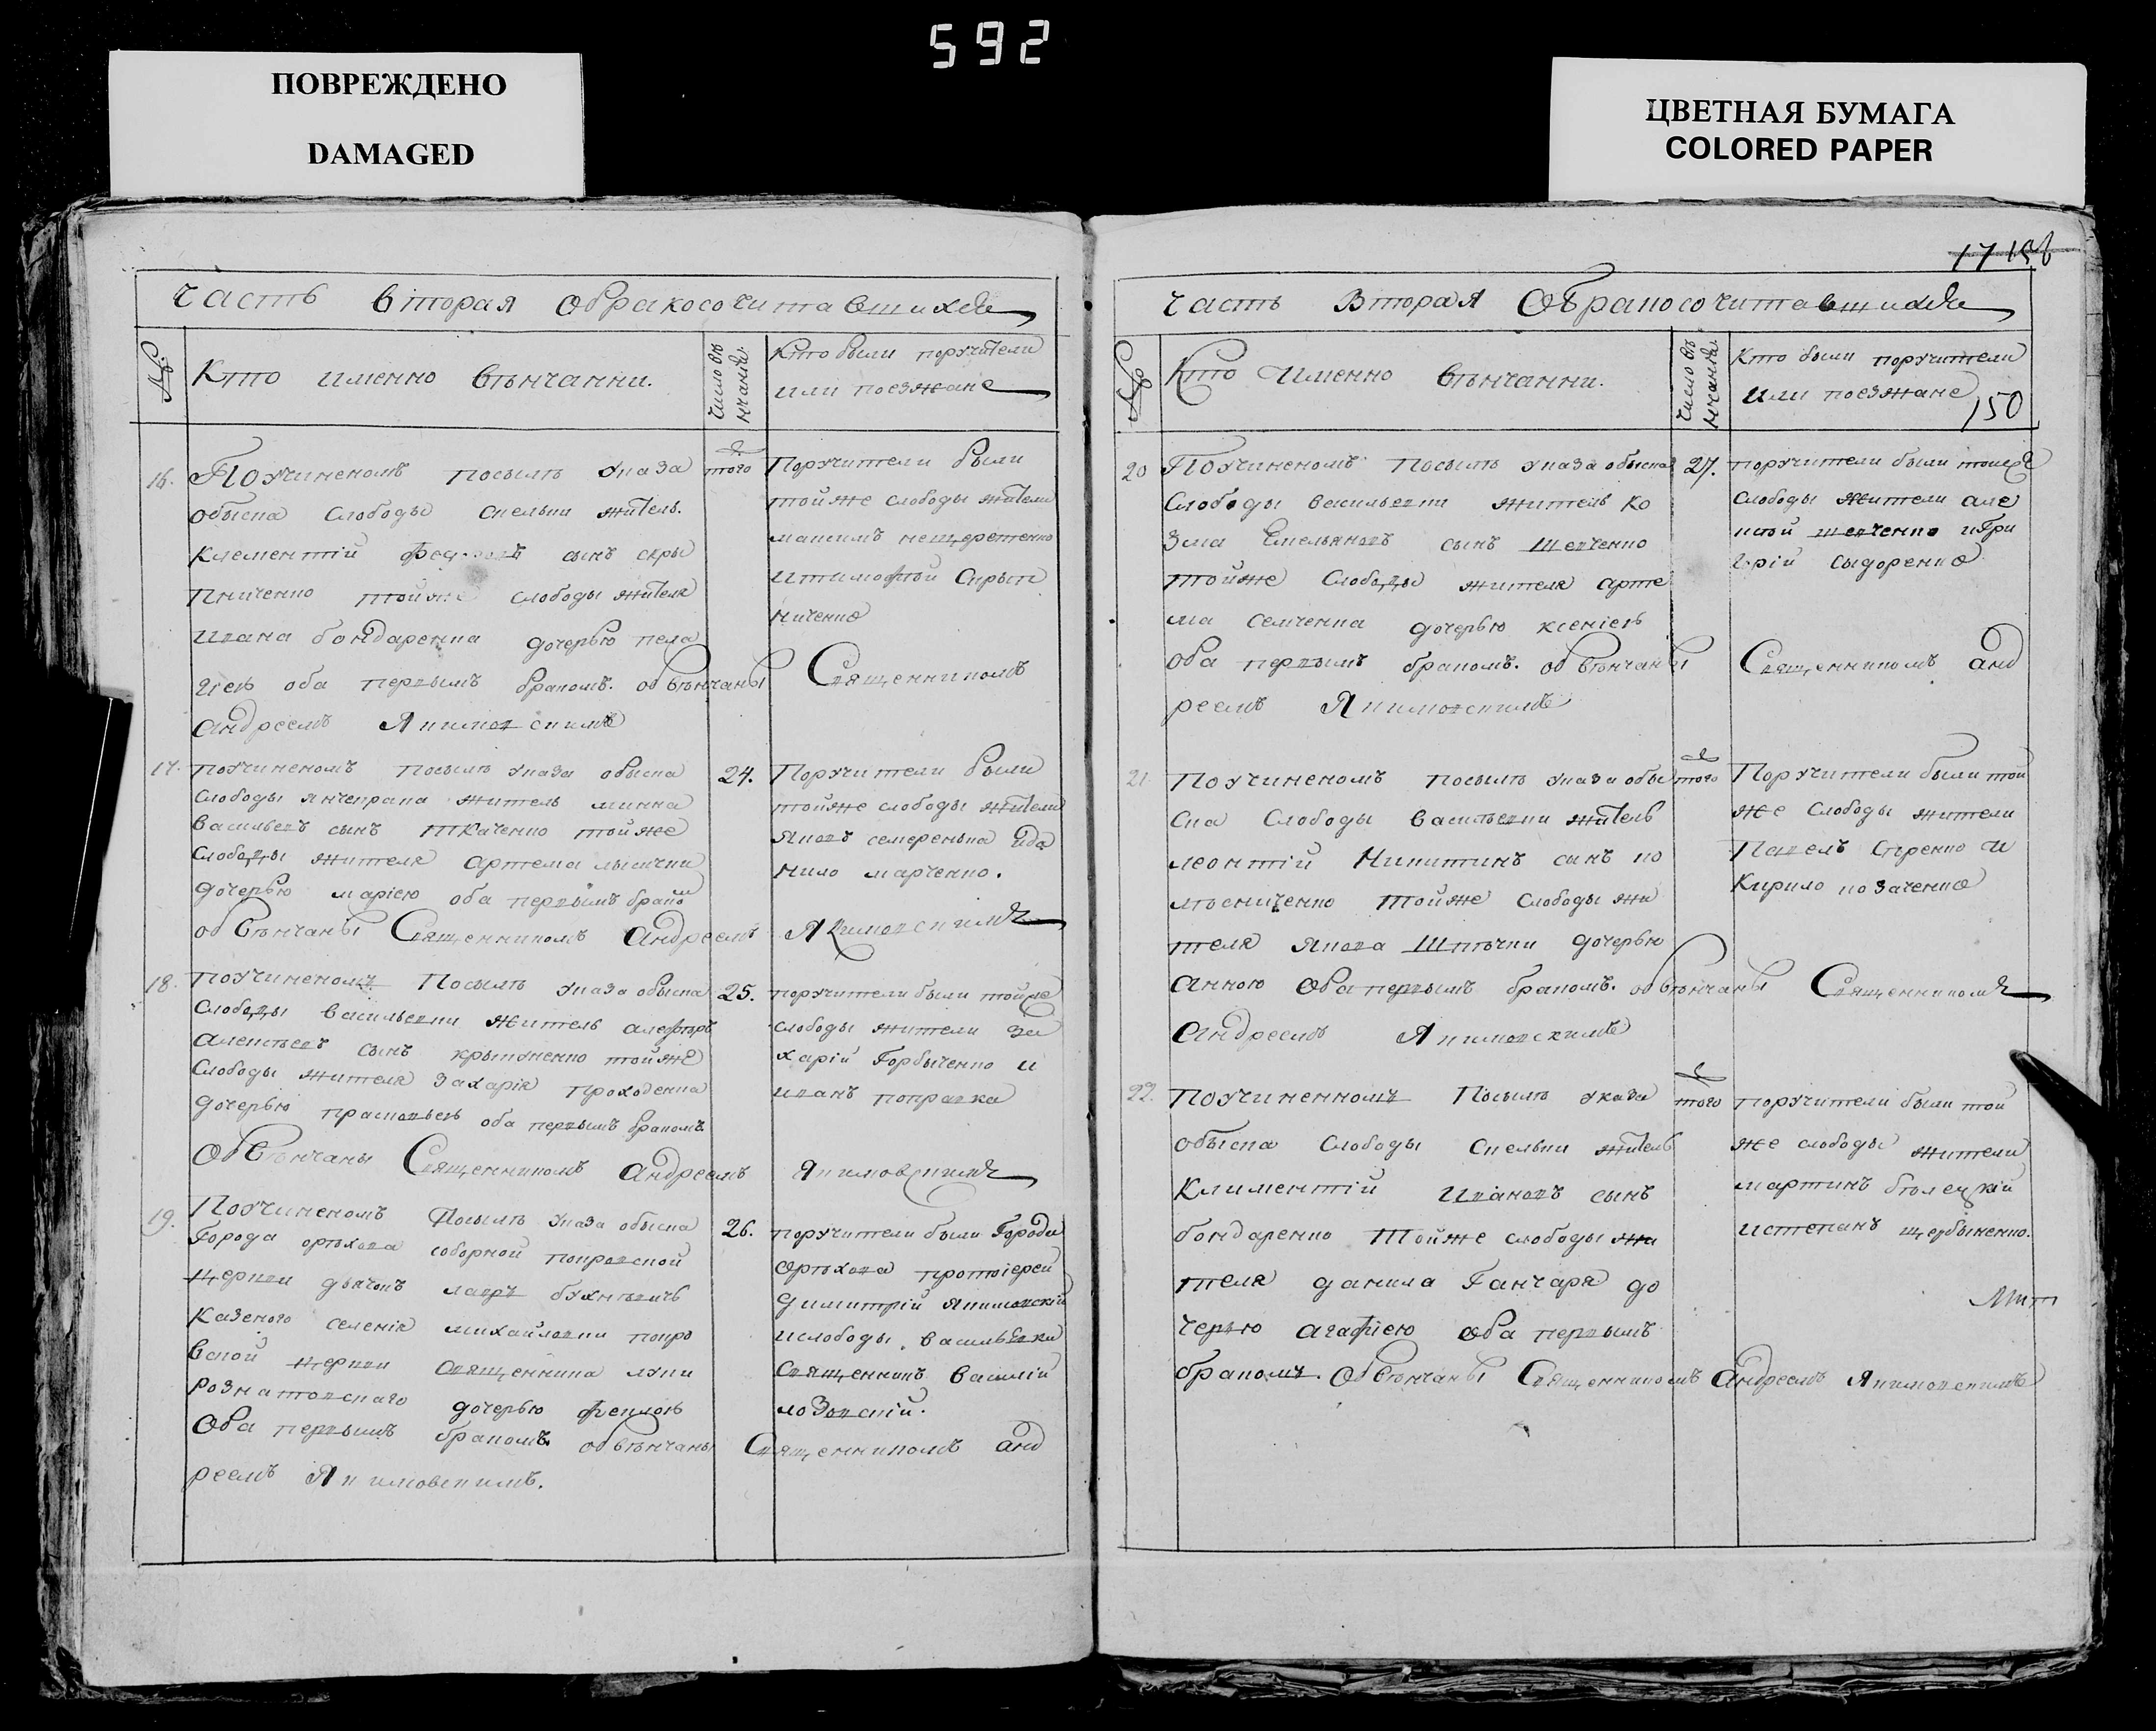 592
ПОВРЕЖДЕНО
DAMAGED
ЦВЕТНАЯ БУМАГА
COLORED PAPER
Часть вторая обракосочитавшихся
№
Кто именно вѣнчанни.
Число вѣ
нчания.
Кто были поручители
или поезжане
16.
Поучиненомъ посылѣ указа
обыска слободы скельки житель.
Клементій сынъ скры
пниченко тойже слободы жителя
Ивана бондаренка дочерью пела
гіею оба первымъ бракомъ. обвѣнчаны Священникомъ
андреемъ Якимовскимъ
того
Поручители были
тойже слободы жители
максимъ нещеретенко
итимофѣй Скрып
ниченко
17.
поучиненомъ посылѣ указа обыска
Слободы янчекрака житель минка
васильевъ сынъ ткаченко тойже
слободы жителя артема лысички
дочерью маріею оба первымъ бракомъ
обвѣнчаны Священникомъ андреемъ Якимовскимъ
24.
Поручители были
тойже слободы жители
Яковъ семеренька ида
нило марченко.
18.
поучиненомъ Посылѣ указа обыска
Слободы васильевки житель алеферъ
алексѣевъ сынъ крыжненко тойже
Слободы жителя Захарія проходенка
дочерью прасковьею оба первымъ бракомъ
Обвѣнчаны Священникомъ андреемъ Якимовскимъ
25.
поручители были тойже
слободы жители за
харій Горбыченко и
иванъ поправка
19.
Поучиненомъ Посылѣ указа обыска
Города орѣхова соборной покровской
церкви дьячокъ лавръ
Казеного селенія михайловки покро
вской церкви священника луки
розматовскаго дочерью феклою
Оба первымъ бракомъ обвѣнчаны Священникомъ анд
реемъ Якимовскимъ.
26.
поручители были Города
Орѣхова протоіерей
димитрій Якимовскій
ислободы васильевки
Священникъ василій
лозовскій.
17 158
Часть Вторая Обракосочитавшихся
№
Кто Именно вѣнчанни.
Число вѣ
нчания.
Кто были поручители
или поезжане
150
20
Поучиненомъ Посылѣ указа обыска
Слободы васильевки житель ко
зма Емельяновъ сынъ шевченко
тойже Слободы жителя арте
ма семченка дочерью ксеніею
оба первымъ бракомъ. обвѣнчаны Священникомъ анд
реемъ Якимовскимъ
27.
поручители были тойже
слободы жители але
ксѣй шевченко игри
горій сыдоренко
21.
Поучиненомъ посылѣ указа обы
ска Слободы васильевки житель
леонтій Никитинъ сынъ ко
лѣсниченко тойже слободы жи
теля якова Шпѣчки дочерью
анною Оба первымъ бракомъ. обвѣнчаны Священникомъ
андреемъ Якимовскимъ
того
Поручители были той
же слободы жители
Павелъ Спренко и
Кирило козаченко
22.
Поучиненномъ Посылѣ указа
обыска слободы скельки житель
Климентій Ивановъ сынъ
бондаренко Тойже слободы жи
теля данила Ганчаря до
черью агафіею оба первымъ
бракомъ. Обвѣнчаны Священникомъ андреемъ Якимовскимъ
того
поручители были той
же слободы жители
мартинъ бѣлецкій
истепанъ щербыненко.